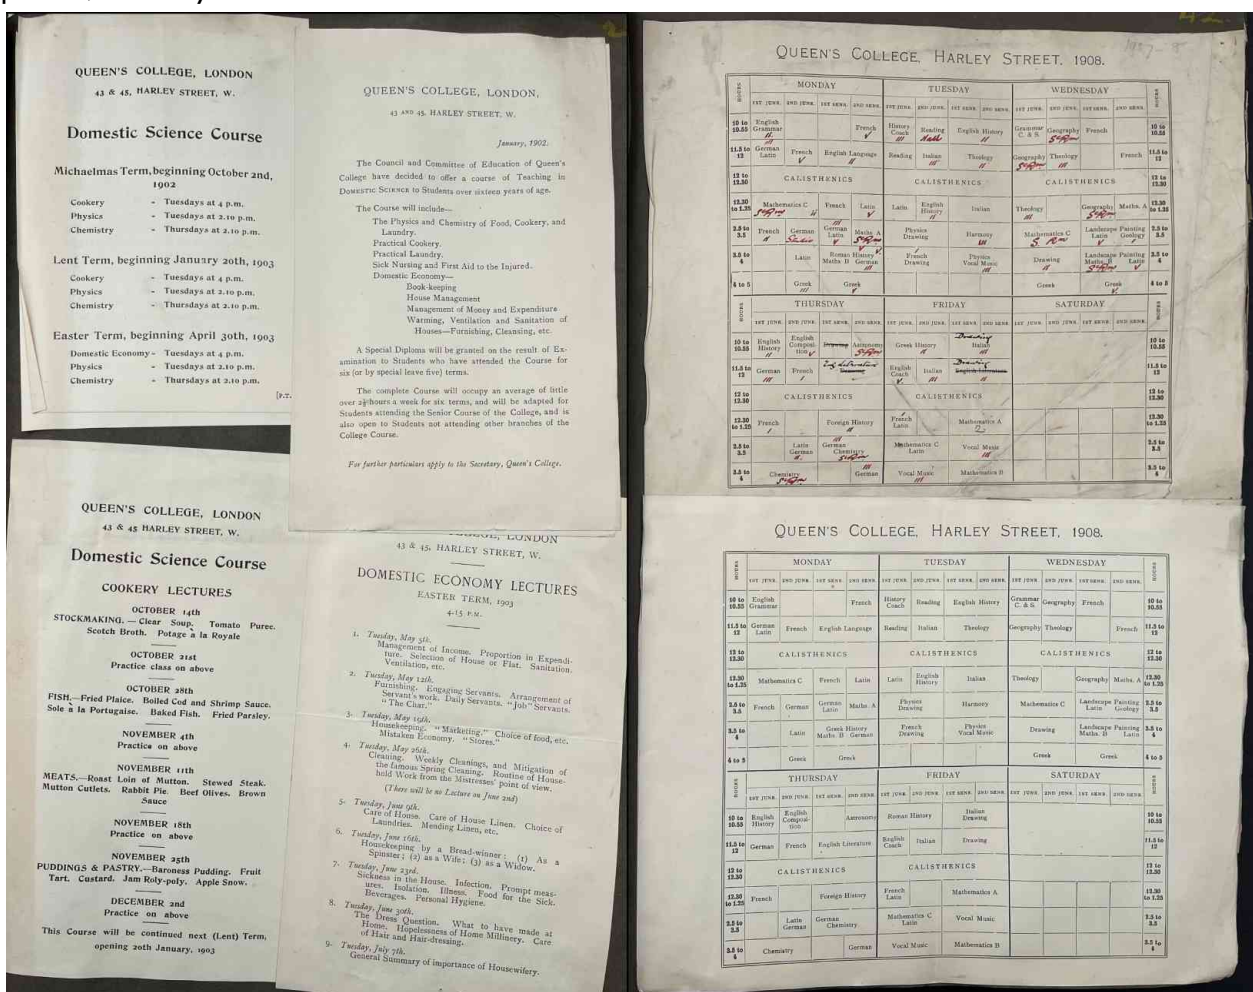 QUEEN'S COLLEGE, LONDON
43 & 45, HARLEY STREET, W.
Domestic Science Course
Michaelmas Term, beginning October 2nd,
1902
Cookery - Tuesdays at 4 p.m.
Physics - Tuesdays at 2.10 p.m.
Chemistry - Thursdays at 2.10 p.m.
Lent Term, beginning January 20th, 1903
Cookery - Tuesdays at 4 p.m.
Physics - Tuesdays at 2.10 p.m.
Chemistry - Thursdays at 2.10 p.m.
Easter Term, beginning April 30th, 1903
Domestic Economy - Tuesdays at 4 p.m.
Physics - Tuesdays at 2.10 p.m.
Chemistry - Thursdays at 2.10 p.m.
[P.T.
QUEEN'S COLLEGE, LONDON,
43 AND 45, HARLEY STREET, W.
January, 1902.
The Council and Committee of Education of Queen's
College have decided to offer a course of Teaching in
DOMESTIC SCIENCE to Students over sixteen years of age.
The Course will include—
The Physics and Chemistry of Food, Cookery, and
Laundry.
Practical Cookery.
Practical Laundry.
Sick Nursing and First Aid to the Injured.
Domestic Economy—
Book-keeping
House Management
Management of Money and Expenditure
Warming, Ventilation and Sanitation of
Houses—Furnishing, Cleansing, etc.
A Special Diploma will be granted on the result of Ex-
amination to Students who have attended the Course for
six (or by special leave five) terms.
The complete Course will occupy an average of little
over 2½ hours a week for six terms, and will be adapted for
Students attending the Senior Course of the College, and is
also open to Students not attending other branches of the
College Course.
For further particulars apply to the Secretary, Queen's College.
QUEEN'S COLLEGE, LONDON
43 & 45 HARLEY STREET, W.
Domestic Science Course
COOKERY LECTURES
OCTOBER 14th
STOCKMAKING.—Clear Soup. Tomato Puree.
Scotch Broth. Potage à la Royale
OCTOBER 21st
Practice class on above
OCTOBER 28th
FISH.—Fried Plaice. Boiled Cod and Shrimp Sauce.
Sole à la Portugaise. Baked Fish. Fried Parsley.
NOVEMBER 4th
Practice on above
NOVEMBER 11th
MEATS.—Roast Loin of Mutton. Stewed Steak.
Mutton Cutlets. Rabbit Pie. Beef Olives. Brown
Sauce
NOVEMBER 18th
Practice on above
NOVEMBER 25th
PUDDINGS & PASTRY.—Baroness Pudding. Fruit
Tart. Custard. Jam Roly-poly. Apple Snow.
DECEMBER 2nd
Practice on above
This Course will be continued next (Lent) Term,
opening 20th January, 1903
LONDON
43 & 45, HARLEY STREET, W.
DOMESTIC ECONOMY LECTURES
EASTER TERM, 1903
4.15 P.M.
1. Tuesday, May 5th.
Management of Income. Proportion in Expendi-
ture. Selection of House or Flat. Sanitation.
Ventilation, etc.
2. Tuesday, May 12th.
Furnishing. Engaging Servants. Arrangement of
Servant's work. Daily Servants. "Job" Servants.
"The Char."
3. Tuesday, May 19th.
Housekeeping. "Marketing." Choice of food, etc.
Mistaken Economy. "Stores."
4. Tuesday, May 26th.
Cleaning. Weekly Cleanings, and Mitigation of
the famous Spring Cleaning. Routine of House-
hold Work from the Mistresses' point of view.
(There will be no Lecture on June 2nd)
5. Tuesday, June 9th.
Care of House. Care of House Linen. Choice of
Laundries. Mending Linen, etc.
6. Tuesday, June 16th.
Housekeeping by a Bread-winner: (1) As a
Spinster; (2) as a Wife; (3) as a Widow.
7. Tuesday, June 23rd.
Sickness in the House. Infection. Prompt meas-
ures. Isolation. Illness. Food for the Sick.
Beverages. Personal Hygiene.
8. Tuesday, June 30th.
The Dress Question. What to have made at
Home. Hopelessness of Home Millinery. Care
of Hair and Hair-dressing.
9. Tuesday, July 7th.
General Summary of importance of Housewifery.
QUEEN'S COLLEGE, HARLEY STREET, 1908.
HOURS MONDAY TUESDAY WEDNESDAY HOURS
1ST JUNR. 2ND JUNR. 1ST SENR. 2ND SENR. 1ST JUNR. 2ND JUNR. 1ST SENR. 2ND SENR. 1ST JUNR. 2ND JUNR. 1ST SENR. 2ND SENR.
10 to 10.55 English Grammar French History Coach Reading Hall English History Grammar C. & S. Geography French 10 to 10.55
11.5 to 12 German Latin French English Language Reading Italian Theology Geography Theology French 11.5 to 12
12 to 12.30 CALISTHENICS CALISTHENICS CALISTHENICS 12 to 12.30
12.30 to 1.25 Mathematics C French Latin Latin English History Italian Theology Geography Maths. A 12.30 to 1.25
2.5 to 3.5 French German Studio German Latin Maths A Physics Drawing Harmony Mathematics C Landscape Painting Latin Geology 2.5 to 3.5
3.5 to 4 Latin Roman History Maths B German French Drawing Physics Vocal Music Drawing Landscape Painting Maths. B Latin 3.5 to 4
4 to 5 Greek Greek Greek Greek 4 to 5
HOURS THURSDAY FRIDAY SATURDAY HOURS
1ST JUNR. 2ND JUNR. 1ST SENR. 2ND SENR. 1ST JUNR. 2ND JUNR. 1ST SENR. 2ND SENR. 1ST JUNR. 2ND JUNR. 1ST SENR. 2ND SENR.
10 to 10.55 English History English Composition Drawing Astronomy Greek History Drawing Italian 10 to 10.55
11.5 to 12 German French Eng Literature Drawing English Coach Italian Drawing English Literature 11.5 to 12
12 to 12.30 CALISTHENICS CALISTHENICS 12 to 12.30
12.30 to 1.25 French Foreign History French Latin Mathematics A 12.30 to 1.25
2.5 to 3.5 Latin German German Chemistry Mathematics C Latin Vocal Music 2.5 to 3.5
3.5 to 4 Chemistry German Vocal Music Mathematics B 3.5 to 4
QUEEN'S COLLEGE, HARLEY STREET, 1908.
HOURS MONDAY TUESDAY WEDNESDAY HOURS
1ST JUNR. 2ND JUNR. 1ST SENR. 2ND SENR. 1ST JUNR. 2ND JUNR. 1ST SENR. 2ND SENR. 1ST JUNR. 2ND JUNR. 1ST SENR. 2ND SENR.
10 to 10.55 English Grammar French History Coach Reading English History Grammar C. & S. Geography French 10 to 10.55
11.5 to 12 German Latin French English Language Reading Italian Theology Geography Theology French 11.5 to 12
12 to 12.30 CALISTHENICS CALISTHENICS CALISTHENICS 12 to 12.30
12.30 to 1.25 Mathematics C French Latin Latin English History Italian Theology Geography Maths. A 12.30 to 1.25
2.5 to 3.5 French German German Latin Maths. A Physics Drawing Harmony Mathematics C Landscape Painting Latin Geology 2.5 to 3.5
3.5 to 4 Latin Greek History Maths. B German French Drawing Physics Vocal Music Drawing Landscape Painting Maths. B Latin 3.5 to 4
4 to 5 Greek Greek Greek Greek 4 to 5
HOURS THURSDAY FRIDAY SATURDAY HOURS
1ST JUNR. 2ND JUNR. 1ST SENR. 2ND SENR. 1ST JUNR. 2ND JUNR. 1ST SENR. 2ND SENR. 1ST JUNR. 2ND JUNR. 1ST SENR. 2ND SENR.
10 to 10.55 English History English Composition Astronomy Roman History Italian Drawing 10 to 10.55
11.5 to 12 German French English Literature English Coach Italian Drawing 11.5 to 12
12 to 12.30 CALISTHENICS CALISTHENICS 12 to 12.30
12.30 to 1.25 French Foreign History French Latin Mathematics A 12.30 to 1.25
2.5 to 3.5 Latin German German Chemistry Mathematics C Latin Vocal Music 2.5 to 3.5
3.5 to 4 Chemistry German Vocal Music Mathematics B 3.5 to 4